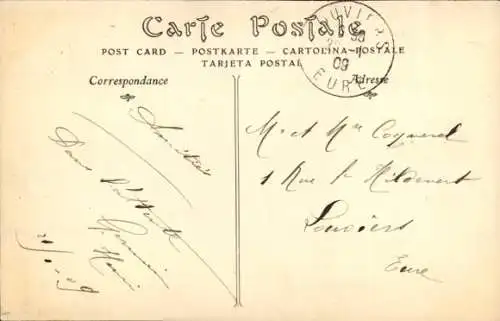 Carte Postale
POST CARD — POSTKARTE — CARTOLINA-POSTALE
TARJETA POSTAL
Correspondance
Adresse
EURE
09
Amitiés
Dans l'attente
M. et Mme Coquerel
1 Rue St Hildevert
Louviers
Eure